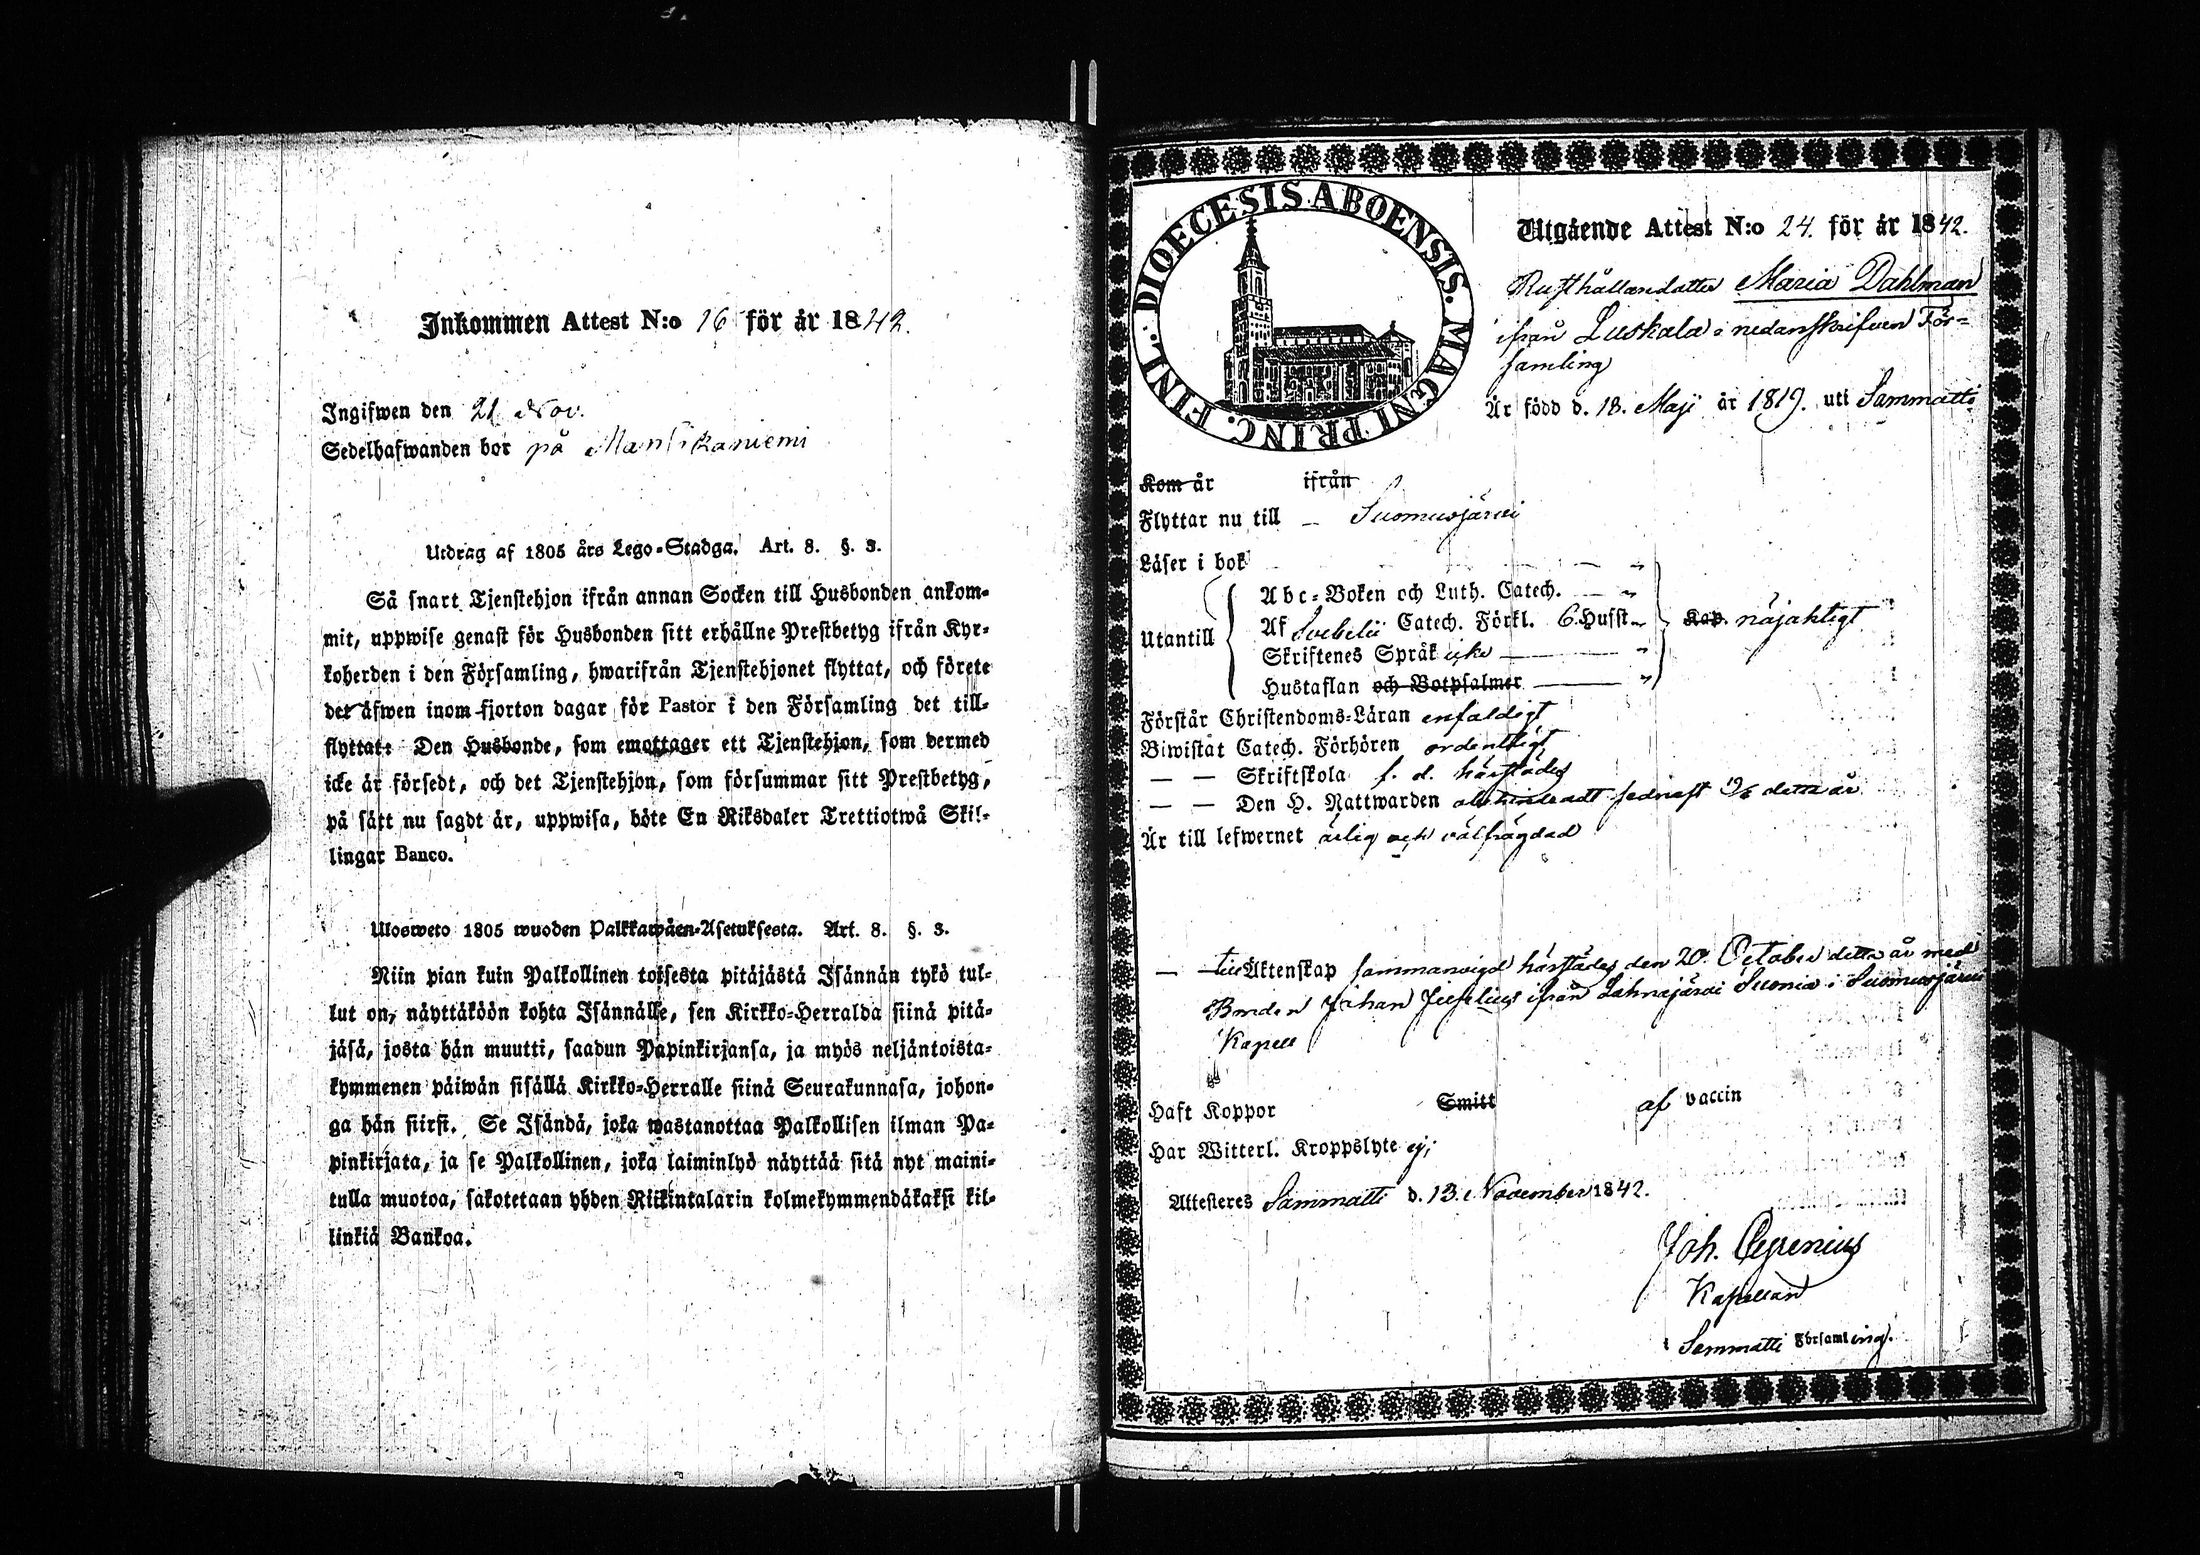 Inkommen Attest N:o 16 för år 1842.
Ingifwen den 21 Nov.
Sedelhafwanden bor på Mansikaniemi
Utdrag af 1805 års Lego-Stadga. Art. 8. §. 3.
Så snart Tjenstehjon ifrån annan Socken till Husbonden ankom-
mit, uppwise genast för Husbonden sitt erhållne Prestbetyg ifrån Kyr-
koherden i den Församling, hwarifrån Tjenstehjonet flyttat, och förete
det äfwen inom fjorton dagar för Pastor i den Församling det till-
flyttat: Den Husbonde, som emottager ett Tjenstehjon, som dermed
icke är försedt, och det Tjenstehjon, som försummar sitt Prestbetyg,
på sätt nu sagdt är, uppwisa, böte En Riksdaler Trettiotwå Skil-
lingar Banco.
Ulosweto 1805 wuoden Palkkawäen-Asetuksesta. Art. 8. §. 3.
Niin pian kuin Palkollinen toisesta pitäjästä Isännän tykö tul-
lut on, näyttäköön kohta Isännälle, sen Kirkko-Herralda siinä pitä-
jäsä, josta hän muutti, saadun Papinkirjansa, ja myös neljäntoista-
kymmenen päiwän sisällä Kirkko-Herralle siinä Seurakunnasa, johon-
ga hän siirsi. Se Isändä, joka wastanottaa Palkollisen ilman Pa-
pinkirjata, ja se Palkollinen, joka laiminlyö näyttää sitä nyt maini-
tulla muotoa, sakotetaan yhden Riikintalarin kolmekymmendäkaksi kil-
linkiä Bankoa.
DIOECESIS ABOENSIS. MAGNI PRINC. FINL.
Utgående Attest N:o 24. för år 1842.
Rusthållaredotter Maria Dahlman
ifrån Luskala i nedanskrifven För-
samling
Är född d. 13. Maji år 1819. uti Sammatti
Kom år ifrån
Flyttar nu till Suomusjärvi
Läser i bok
Abc-Boken och Luth. Catech.
Utantill Af Svebelii Catech. Förkl. 6. Husst. Kap. nöjaktigt
Skriftenes Språk icke
Hustaflan och Botpsalmer
Förstår Christendoms-Läran enfaldigt
Biwistat Catech. Förhören ordentligt
— — Skriftskola f. d. härstädes
— — Den H. Nattwarden sednast detta år
Är till lefwernet ärlig och välfrägdad
— till Äktenskap sammanvigd härstädes den 20. October detta år med
Bonden Johan Juselius ifrån Lahnajärvi Suonia i Suomusjärvi
Kapell
Haft Koppor Smitt af vaccin
Har Witterl. Kroppslyte ej;
Attesteres Sammatti d. 13. November 1842.
Joh. Cyrenius
Kapellan
i Sammatti Församling.